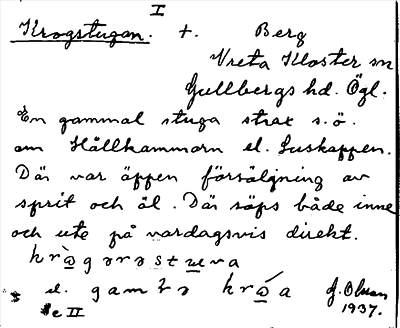 I
Krogstugan. t. Berg
Vreta Kloster sn
Gullbergs hd. Ögl.
En gammal stuga strax s.ö.
om Hållkammarn el. Luskappen.
Där var öppen försäljning av
sprit och öl. Där söps både inne
och ute på vardagsvis direkt.
el.
G. Olsson
1937.